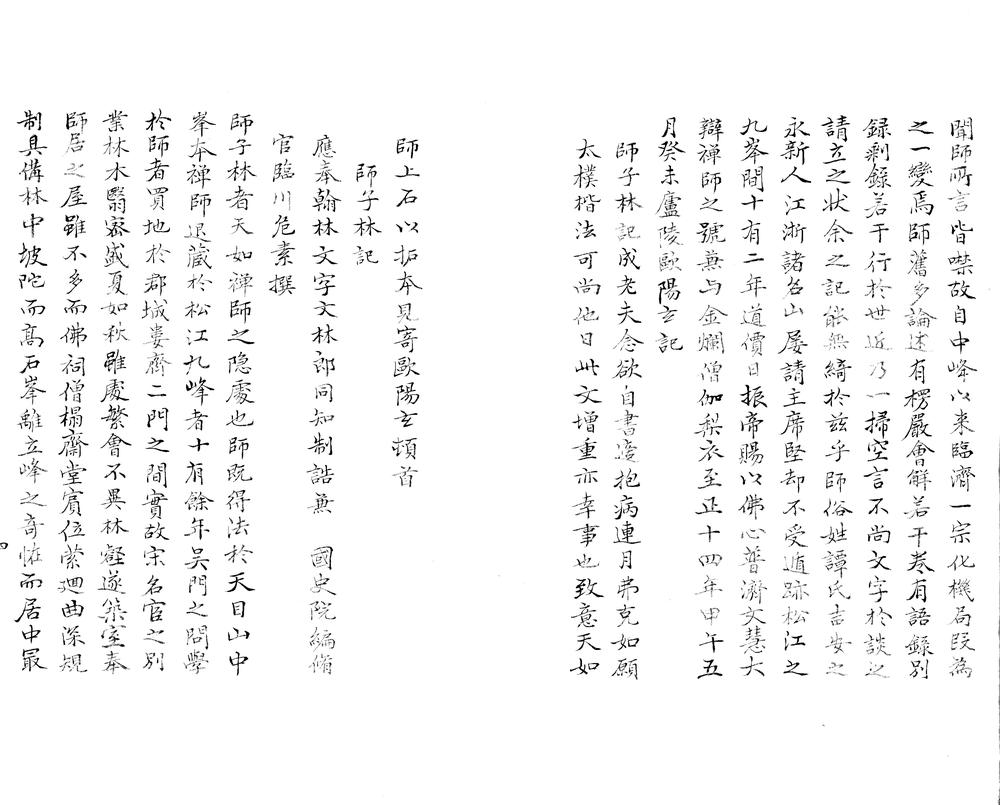 聞師所言皆噤故自中峰以来臨濟一宗化機局叚為
之一變焉師舊多論述有楞嚴會觧若干卷有語錄別
録剩錄若干行於世近乃一掃空言不尚文字於談之
請立之状余之記能無綺於兹乎師俗姓譚氏吉安之
永新人江浙諸名山屡請主席堅却不受遁跡松江之
九峯間十有二年道價日振帝賜以佛心普濟文慧大
辯禅師之號兼与金襴僧伽梨衣至正十四年甲午五
月癸未廬陵歐陽玄記
師子林記成老夫念欲自書寔抱病連月弗克如願
太樸楷法可尚他日此文增重亦幸事也致意天如
師上石以拓本見寄歐陽玄頓首
師子林記
應奉翰林文字文林郎同知制誥兼 國史院編脩
官臨川危素撰
師子林者天如禅師之隐處也師既得法於天目山中
峯本禅師退藏於松江九峰者十有餘年吳門之問學
於師者買地於郡城婁齊二門之間實故宋名官之別
業林木翳宻盛夏如秋雖處繁會不異林壑遂築室奉
師居之屋雖不多而佛祠僧榻齋堂賓位縈廻曲深規
制具備林中坡陀而髙石峯離立峰之奇恠而居中最
四